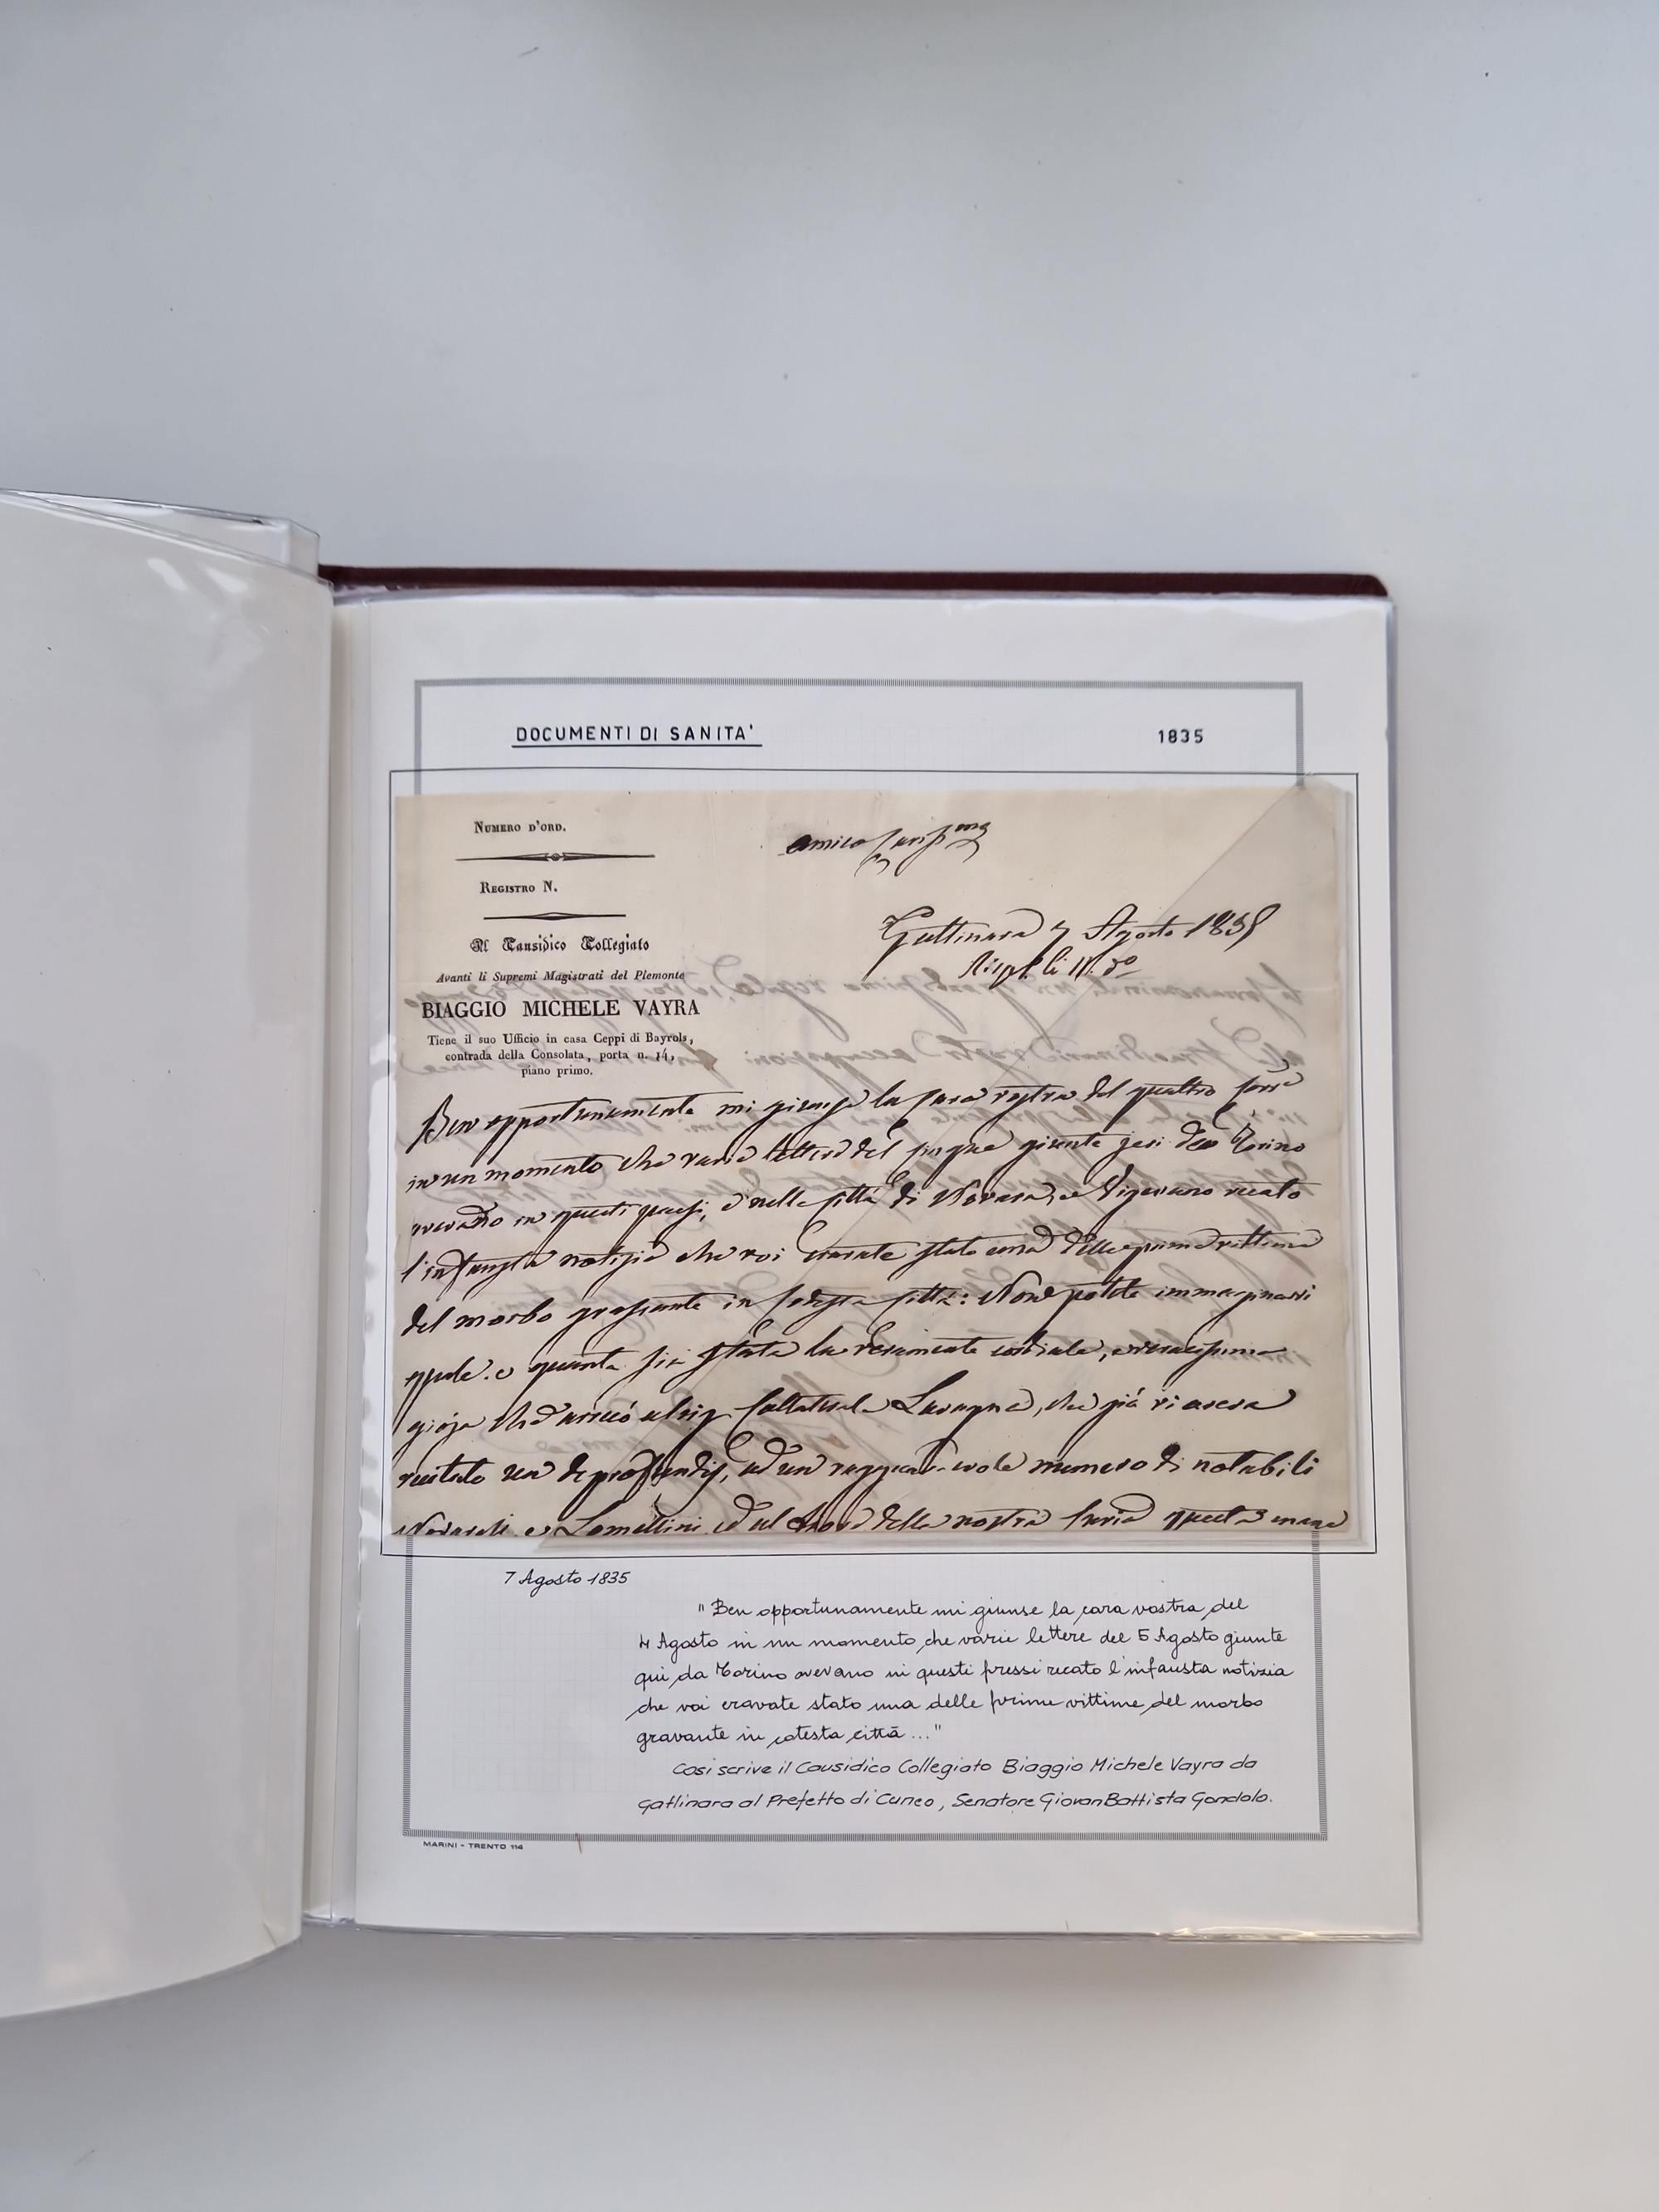 DOCUMENTI DI SANITA'
1835
NUMERO D'ORD.
REGISTRO N.
Il Causidico Collegiato
Avanti li Supremi Magistrati del Piemonte
BIAGGIO MICHELE VAYRA
Tiene il suo Ufficio in casa Ceppi di Bayrols,
contrada della Consolata, porta n. 14,
piano primo.
amico
Gattinara 7 Agosto 1835
Ben opportunamente mi giunse la cara vostra del quattro
in un momento che varie lettere del cinque giunte jeri da Torino
avevano in questi paesi, e nelle città di Novara, e Vigevano recato
l'infausta notizia che voi eravate stato una delle prime vittime
del morbo in cotesta città: Non potete immaginarvi
quale e quanta sia stata la veramente cordiale, e veracissima
gioja che arrecò al sig. Collaterale Lavagna, che già vi aveva
recitato un de profundis, ed un ragguardevole numero di notabili
Novaresi e Lomellini ed al della nostra Curia questa mane
7 Agosto 1835
"Ben opportunamente mi giunse la cara vostra del
4 Agosto in un momento che varie lettere del 5 Agosto giunte
qui da Torino avevano in questi pressi recato l'infausta notizia
che voi eravate stato una delle prime vittime del morbo
gravante in cotesta città ..."
Cosi scrive il Causidico Collegiato Biaggio Michele Vayra da
Gattinara al Prefetto di Cuneo, Senatore Giovan Battista Gondolo.
MARINI - TRENTO 114